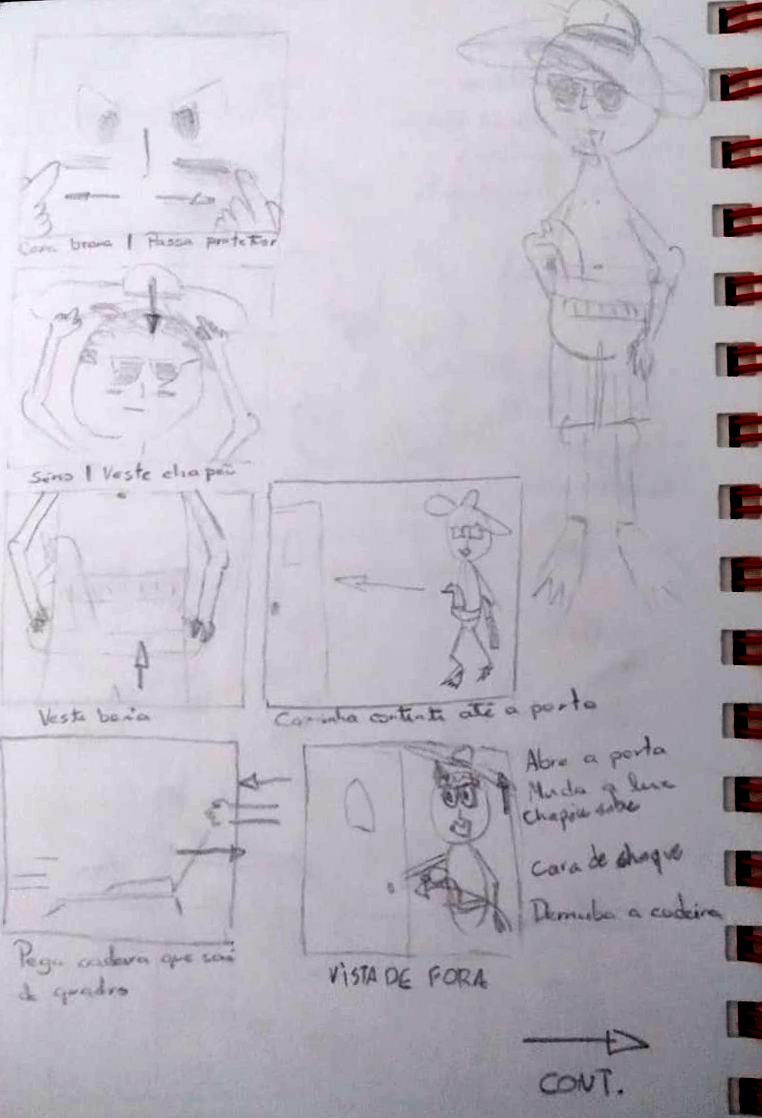 Cara brava | Passa protetor
Sério | Veste chapéu
Veste boia
Caminha contente até a porta
Abre a porta
Muda a luz
Chapéu sobe
Cara de choque
Derruba a cadeira
Pega cadeira que sai
de quadro
VISTA DE FORA
CONT.